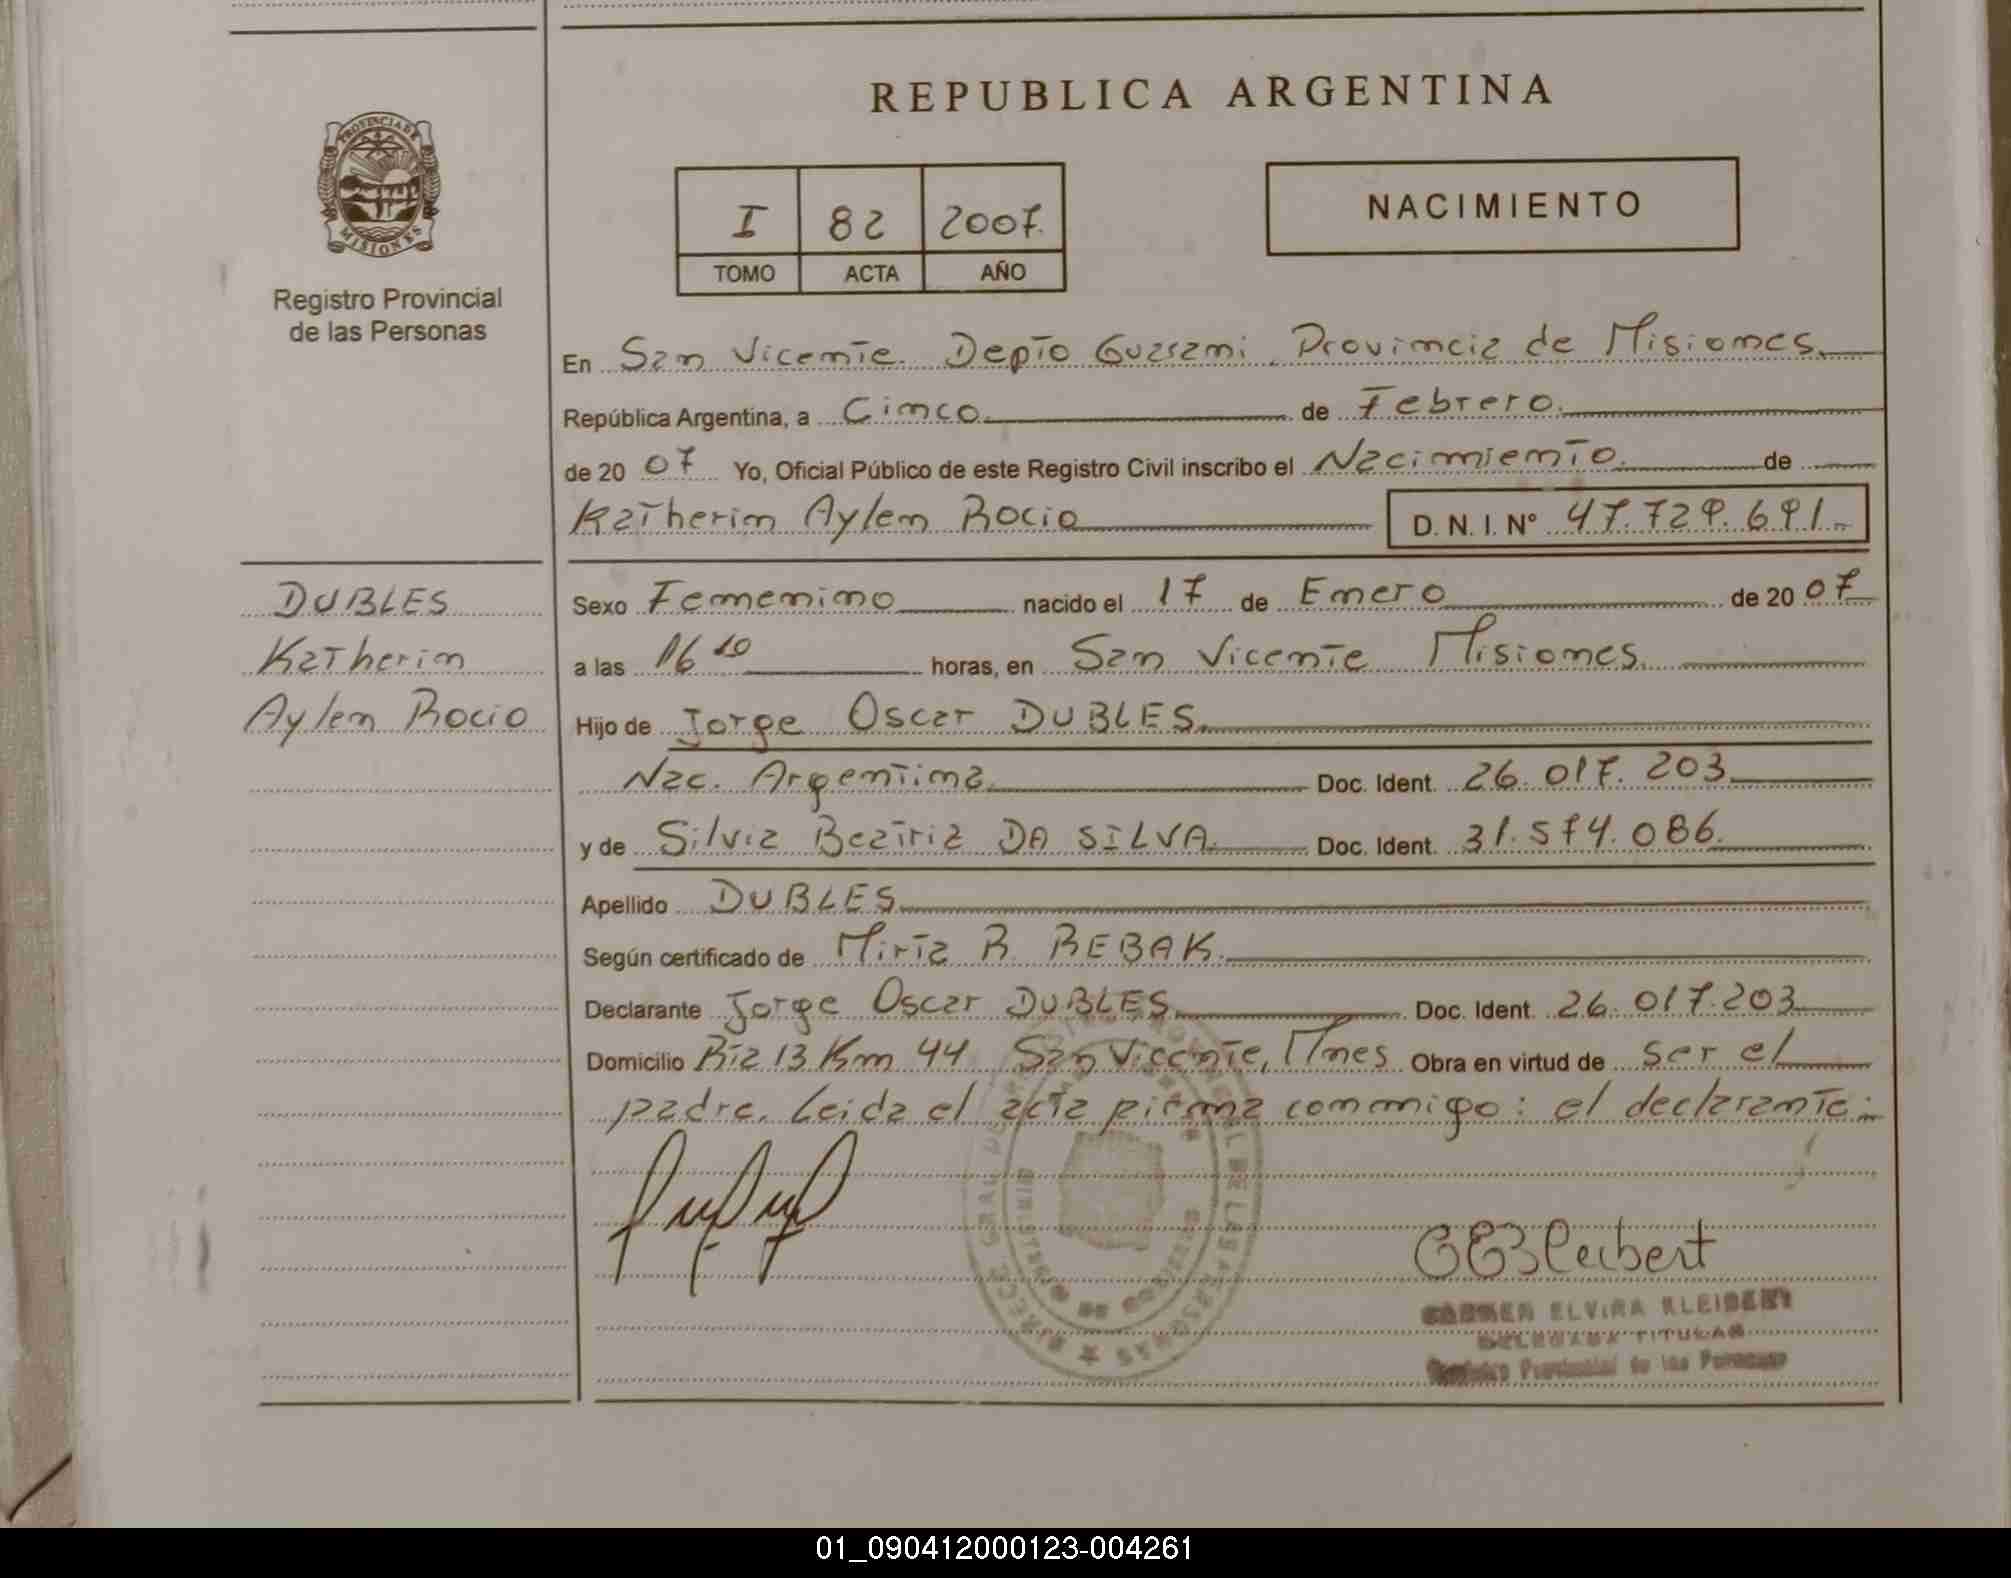 REPUBLICA ARGENTINA
PROVINCIA DE
MISIONES
Registro Provincial
de las Personas
I 82 2007.
TOMO ACTA AÑO
NACIMIENTO
En San Vicente. Depto Guarani. Provincia de Misiones.
República Argentina, a Cinco. de Febrero.
de 20 07 Yo, Oficial Público de este Registro Civil inscribo el Nacimiento. de
Katherin Aylen Rocio D.N.I. Nº 47.729.691.
DUBLES
Katherin
Aylen Rocio
Sexo Femenino nacido el 17 de Enero de 20 07
a las 16 10 horas, en San Vicente Misiones.
Hijo de Jorge Oscar DUBLES.
Nac. Argentina. Doc. Ident. 26.017.203
y de Silvia Beatriz DA SILVA. Doc. Ident. 31.574.086.
Apellido DUBLES
Según certificado de Mirta R. REBAK.
Declarante Jorge Oscar DUBLES. Doc. Ident. 26.017.203
Domicilio Rta 13 Km 44 San Vicente, Mnes Obra en virtud de ser el
padre. Leida el acta firma conmigo: el declarante:
CEKleibert
CARMEN ELVIRA KLEIBERT
DELEGADA TITULAR
Registro Provincial de las Personas
01_090412000123-004261